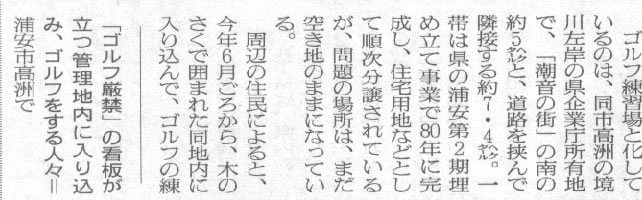 ゴルフ練習場と化して
いるのは、同市高洲の境
川左岸の県企業庁所有地
で、「潮音の街」の南の
約5㌶と、道路を挟んで
隣接する約7・4㌶。一
帯は県の浦安第2期埋
め立て事業で80年に完
成し、住宅用地などとし
て順次分譲されている
が、問題の場所は、まだ
空き地のままになってい
る。
周辺の住民によると、
今年6月ごろから、木の
さくで囲まれた同地内に
入り込んで、ゴルフの練
「ゴルフ厳禁」の看板が
立つ管理地内に入り込
み、ゴルフをする人々＝
浦安市高洲で